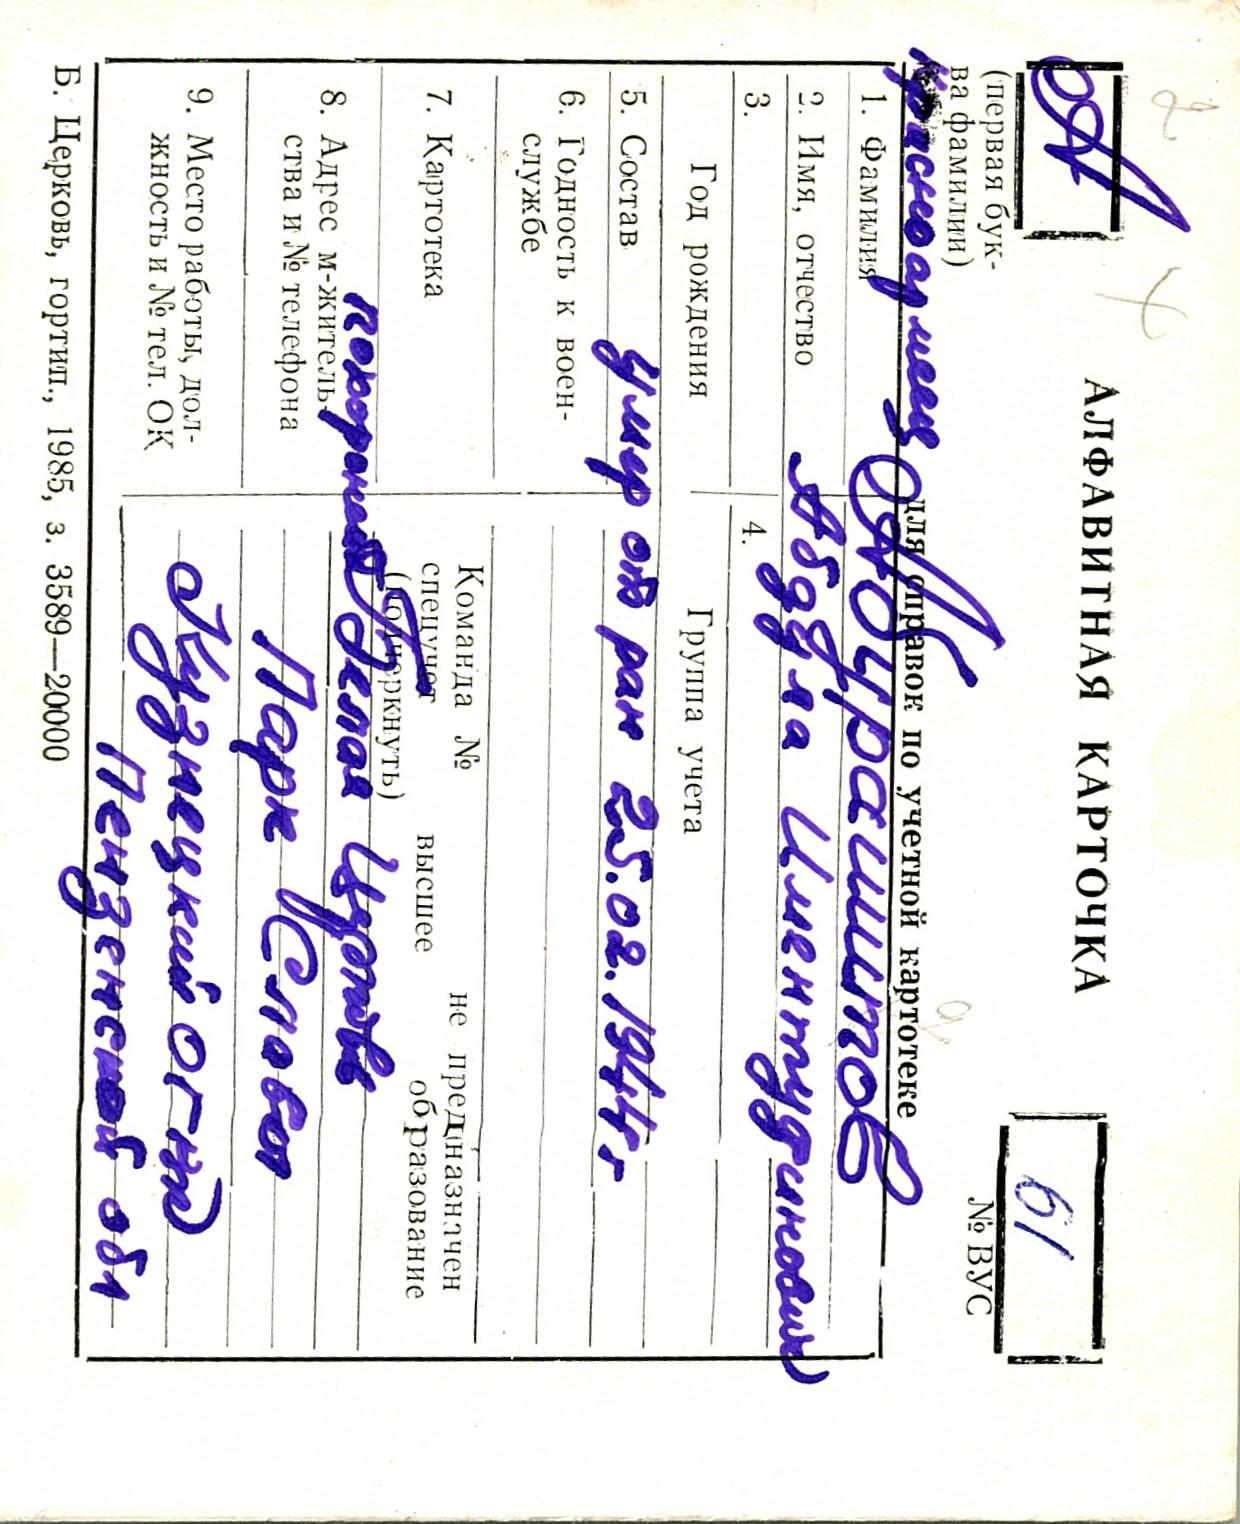 2
А
(первая бук-
ва фамилии)
АЛФАВИТНАЯ КАРТОЧКА
для справок по учетной картотеке
61
№ ВУС
Красноармеец
1. Фамилия
2. Имя, отчество Абдула
3.
4.
Год рождения
Группа учета
5. Состав
умер от ран 25.02.1944 г
6. Годность к воен-
службе
7. Картотека
Команда № не предназначен
спецучет высшее образование
(подчеркнуть)
8. Адрес м-житель-
ства и № телефона
похоронен г Белая Церковь
Парк Слава
9. Место работы, дол-
жность и № тел. ОК
Кузнецкий
Пензенской обл
Б. Церковь, гортип., 1985, з. 3589—20000